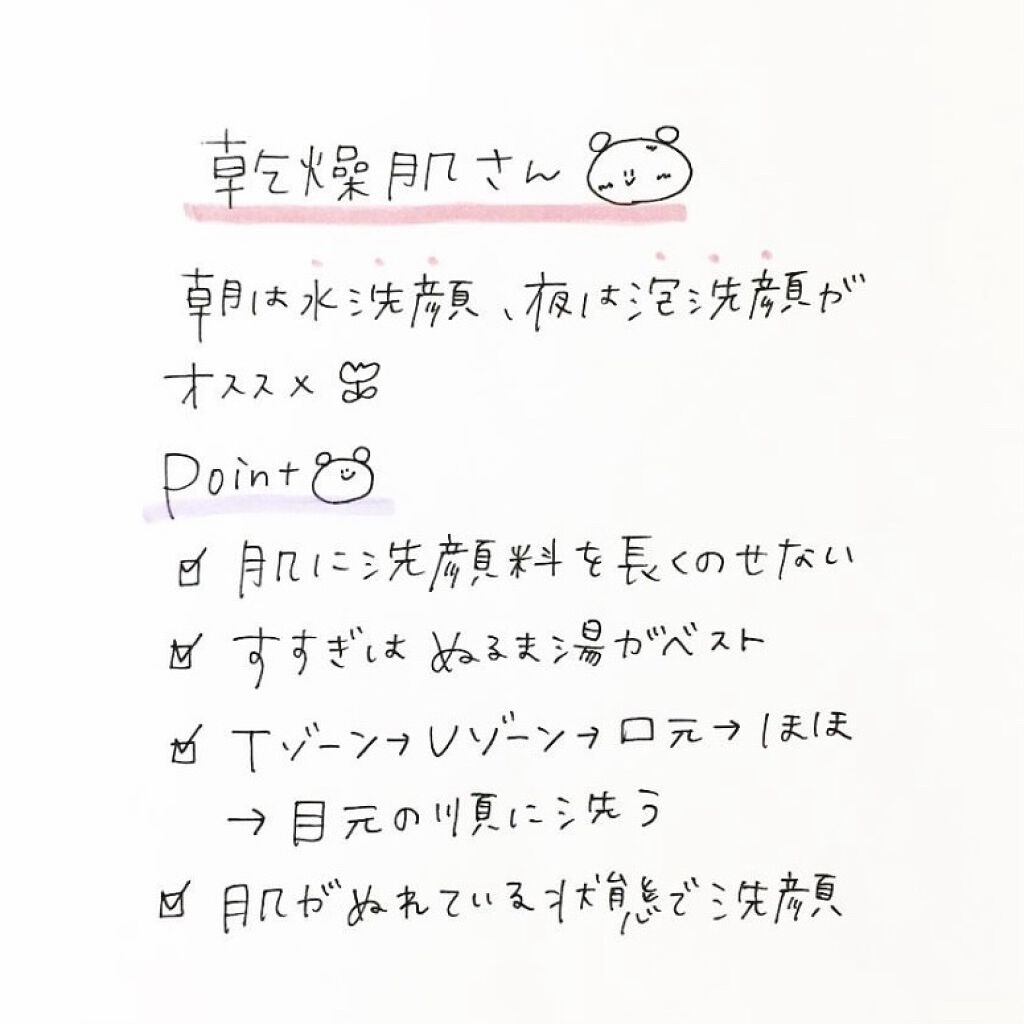 乾燥肌さん
朝は水洗顔、夜は泡洗顔が
オススメ
Point
肌に洗顔料を長くのせない
すすぎは ぬるま湯がベスト
Tゾーン→Uゾーン→口元→ほほ
→目元の順に洗う
肌がぬれている状態で洗顔